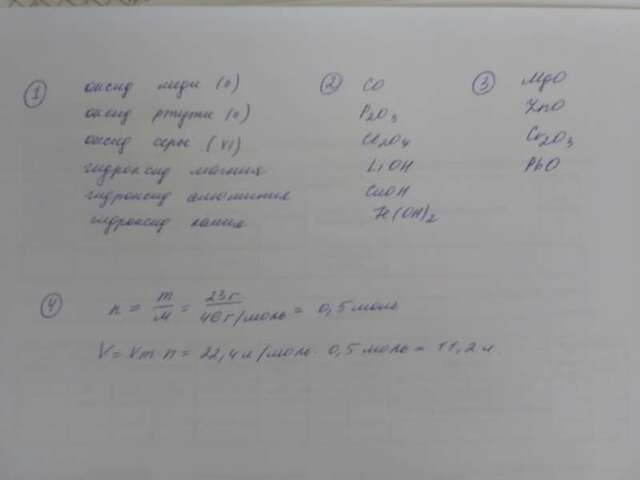 1 оксид меди (II)
оксид ртути (II)
оксид серы (VI)
гидроксид магния
гидроксид алюминия
гидроксид калия
2 CO
P2O3
Cl2O4
LiOH
CuOH
Fe(OH)2
3 MgO
ZnO
Cr2O3
PbO
4 n = m/M = 23г/46г/моль = 0,5 моль
V = Vm n = 22,4 л/моль · 0,5 моль = 11,2 л.